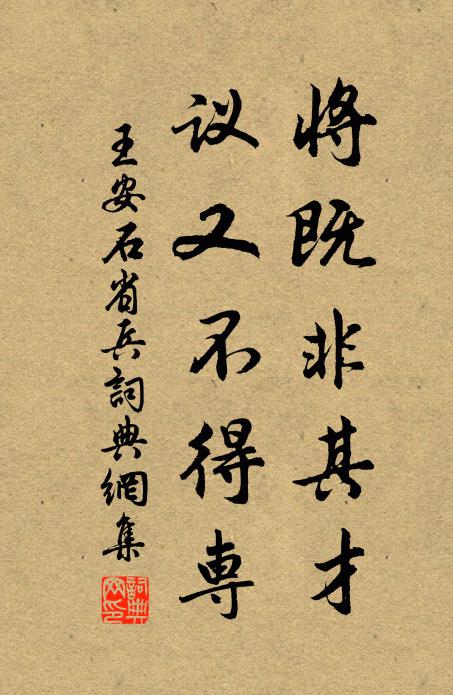 將既非其才
议又不得専
王安石省兵詞典網集
詞典网印